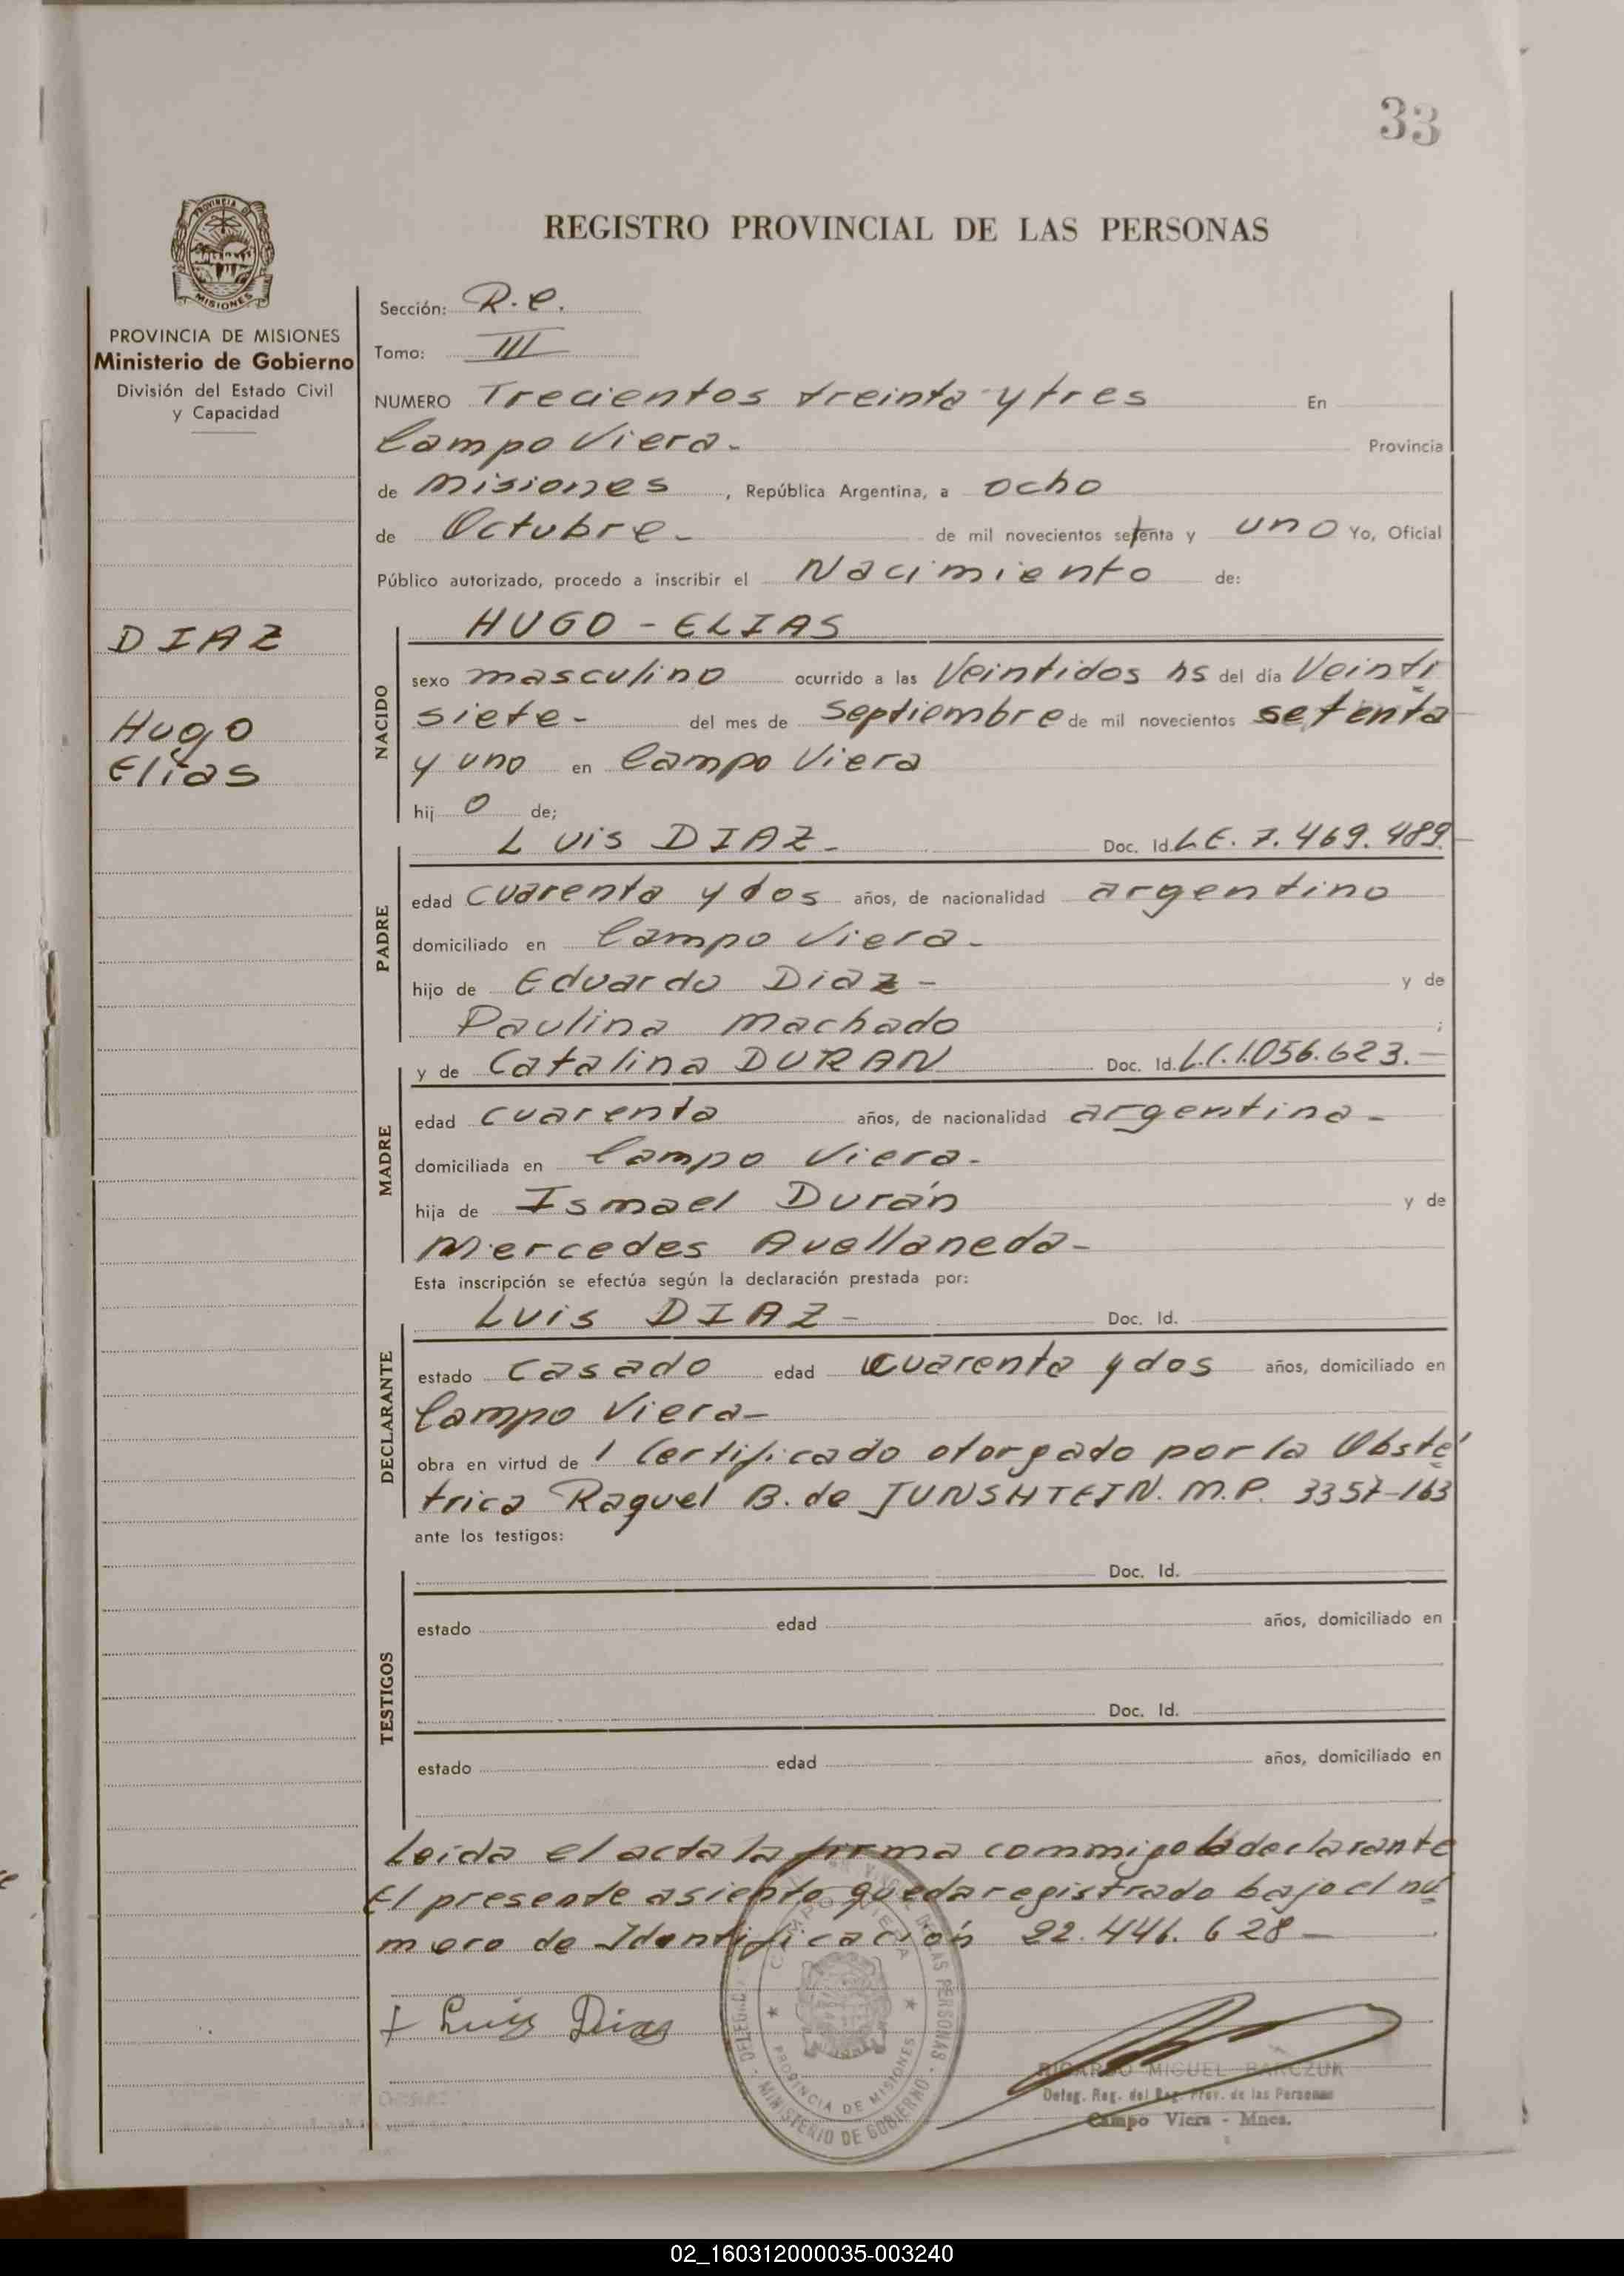 33
PROVINCIA DE
MISIONES
PROVINCIA DE MISIONES
Ministerio de Gobierno
División del Estado Civil
y Capacidad
DIAZ
Hugo
Elias
REGISTRO PROVINCIAL DE LAS PERSONAS
Sección: R.C.
Tomo: III
NUMERO Trecientos treinta y tres En
Campo Viera- Provincia
de Misiones, República Argentina, a ocho
de Octubre- de mil novecientos setenta y uno Yo, Oficial
Público autorizado, procedo a inscribir el Nacimiento de:
NACIDO
HUGO - ELIAS
sexo masculino ocurrido a las Veintidos hs del día Veinti
siete- del mes de Septiembre de mil novecientos setenta
y uno en Campo Viera
hij o de;
PADRE
Luis DIAZ- Doc. Id. L.E. 7.469.489.
edad cuarenta y dos años, de nacionalidad argentino
domiciliado en Campo Viera-
hijo de Eduardo Diaz- y de
Paulina Machado ;
MADRE
y de Catalina DURAN Doc. Id. L.C.1.056.623.-
edad cuarenta años, de nacionalidad argentina-
domiciliada en Campo Viera-
hija de Ismael Durán y de
Mercedes Avellaneda-
Esta inscripción se efectúa según la declaración prestada por:
DECLARANTE
Luis DIAZ- Doc. Id.
estado casado edad cuarenta y dos años, domiciliado en
Campo Viera-
obra en virtud de 1 Certificado otorgado por la Obsté
trica Raquel B. de JUNSHTEIN. M.P. 3357-163
ante los testigos:
TESTIGOS
Doc. Id.
estado edad años, domiciliado en
Doc. Id.
estado edad años, domiciliado en
Leida el acta la firma commigo la declarante
El presente asiento queda registrado bajo el nú
mero de Identificación 22.446.628-
+ Luis Dias
CAMPO VIERA
PROVINCIA DE MISIONES
MINISTERIO DE GOBIERNO
RICARDO MIGUEL BARCZUK
Deleg. Reg. del Reg. Prov. de las Personas
Campo Viera - Mnes.
02_160312000035-003240